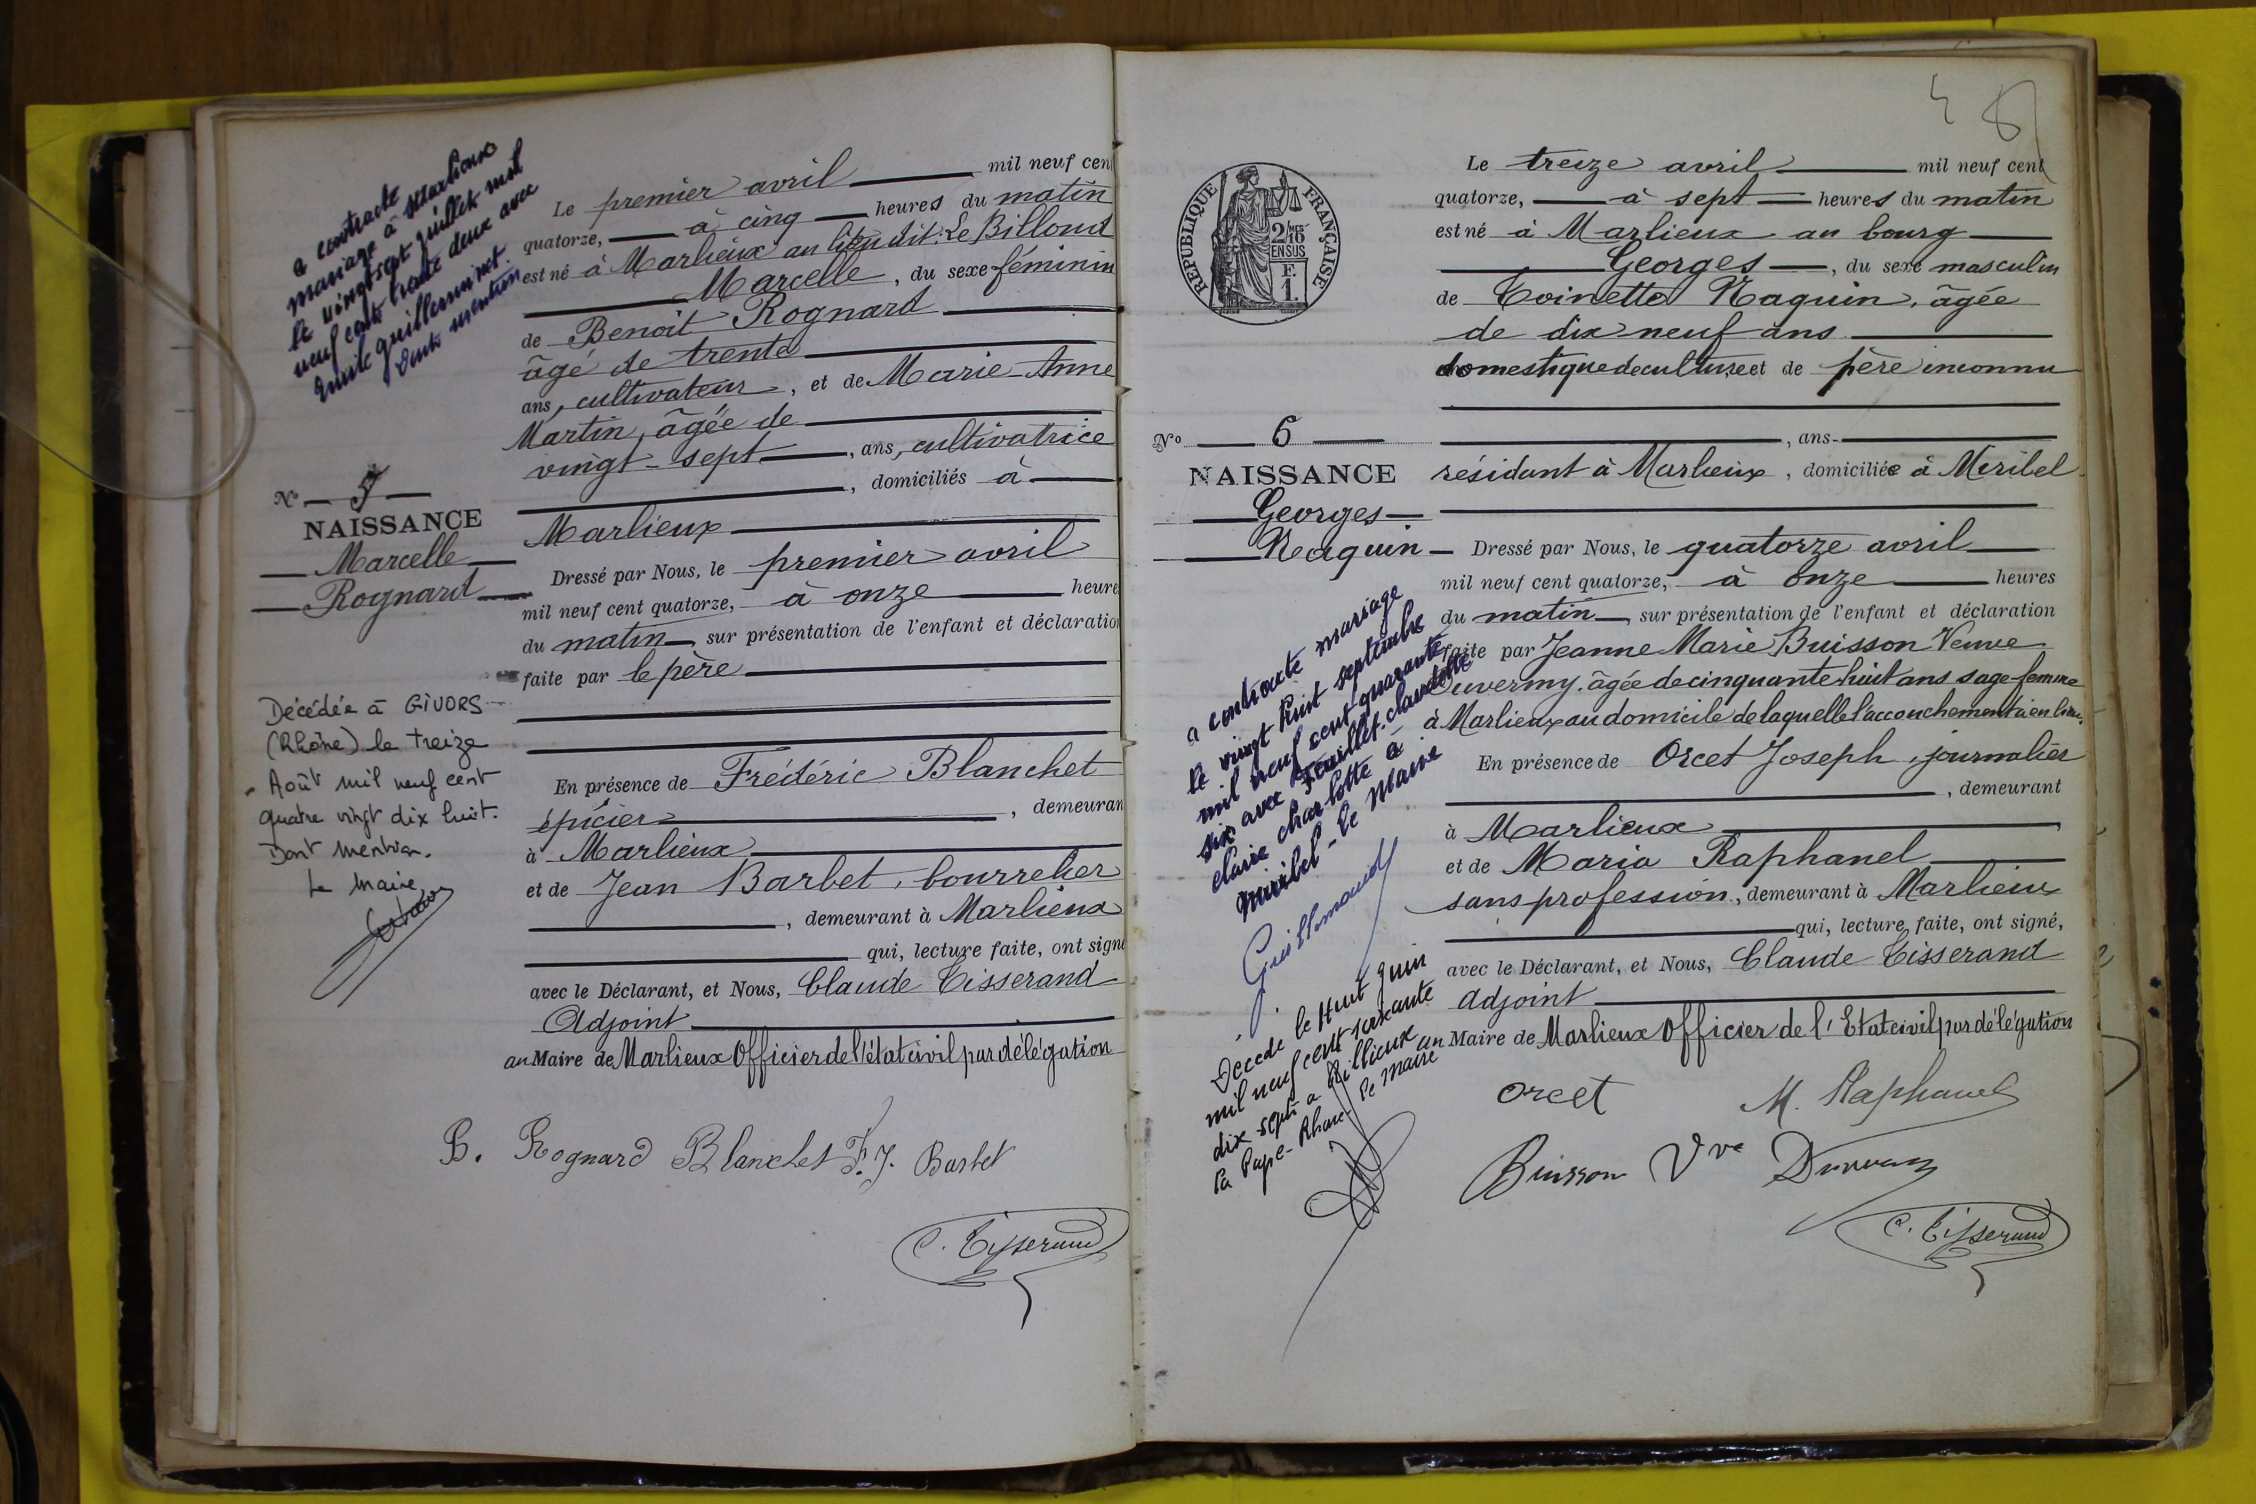 a contracté
mariage à Marlieux
le vingt sept juillet mil
neuf cent trente deux avec
Emile Guillerminet.
Dont mention
Le premier avril mil neuf cen
quatorze, à cinq heures du matin
est né à Marlieux au lieu dit: Le Billoud
Marcelle, du sexe féminin
de Benoit Rognard
âgé de trente
ans, cultivateur, et de Marie-Anne
Martin, âgée de
vingt-sept, ans, cultivatrice
, domiciliés à
Marlieux
No 5
NAISSANCE
Marcelle
Rognard
Dressé par Nous, le premier avril
mil neuf cent quatorze, à onze heure
du matin, sur présentation de l'enfant et déclaration
faite par le père
Décédée à GIVORS
(Rhône) le treize
Août mil neuf cent
quatre vingt dix huit.
Dont mention.
Le Maire
En présence de Frédéric Blanchet
épicier, demeuran
à Marlieux
et de Jean Barbet, bourrelier
, demeurant à Marlieux
qui, lecture faite, ont signé
avec le Déclarant, et Nous, Claude Tisserand
Adjoint
au Maire de Marlieux Officier de l'état civil par délégation
B. Rognard Blanchet F. J. Barbet
C. Tisserand
RÉPUBLIQUE FRANÇAISE
2/10 MES
EN SUS
F.
1.
Le treize avril mil neuf cent
quatorze, à sept heures du matin
est né à Marlieux au bourg
Georges, du sexe masculin
de Toinette Naquin, âgée
de dix neuf ans
domestique de culture et de père inconnu
, ans
résidant à Marlieux, domiciliée à Miribel
No 6
NAISSANCE
Georges
Naquin
Dressé par Nous, le quatorze avril
mil neuf cent quatorze, à onze heures
du matin, sur présentation de l'enfant et déclaration
faite par Jeanne Marie Buisson Veuve
Duvermy, âgée de cinquante huit ans sage-femme
à Marlieux au domicile de laquelle l'accouchement a eu lieu.
En présence de Orcet Joseph, journalier
, demeurant
à Marlieux
et de Maria Raphanel
sans profession, demeurant à Marlieux
qui, lecture faite, ont signé,
avec le Déclarant, et Nous, Claude Tisserand
Adjoint
au Maire de Marlieux Officier de l'Etat civil par délégation
a contracté mariage
le vingt huit septembre
mil neuf cent quarante
six avec Feuillet Claudette
claire charlotte à
Miribel - le Maire
Guillemaud
Décédé le Huit Juin
mil neuf cent soixante
dix sept à Rillieux
la Pape-Rhône le maire
Orcet M. Raphanel
Buisson Vve
C. Tisserand